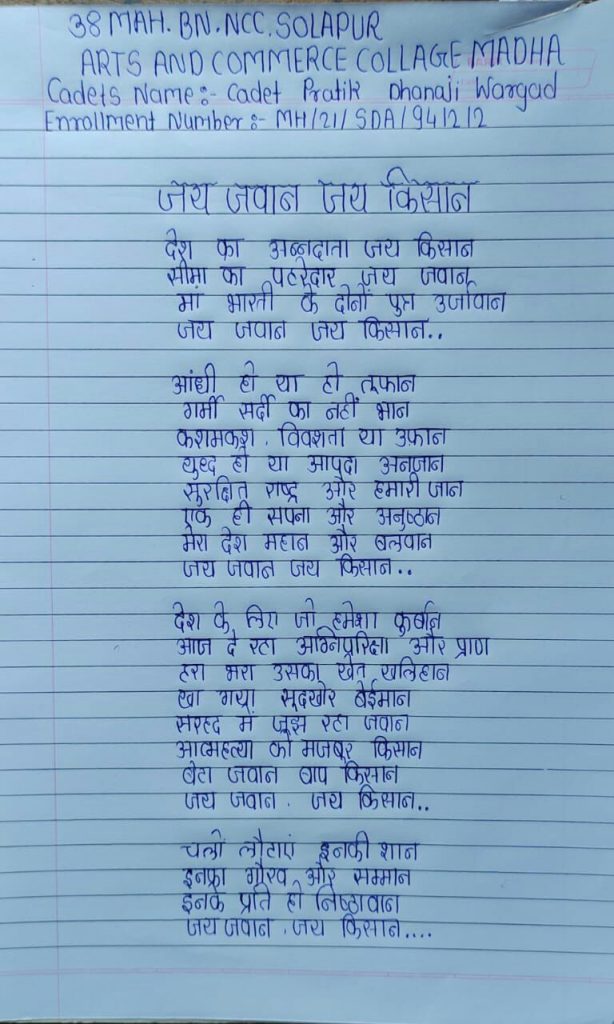 38 MAH. BN. NCC, SOLAPUR
ARTS AND COMMERCE COLLAGE MADHA
Cadets Name :- Cadet Pratik Dhanaji Wargad
Enrollment Number :- MH/21/SDA/941212
जय जवान जय किसान
देश का अन्नदाता जय किसान
सीमा का पहरेदार जय जवान
मां भारती के दोनों पुत्र उर्जावान
जय जवान जय किसान..
आंधी हो या हो तूफान
गर्मी सर्दी का नहीं भान
कशमकश, विवशता या उफान
युध्द हो या आपदा अनजान
सुरक्षित राष्ट्र और हमारी जान
एक ही सपना और अनुष्ठान
मेरा देश महान और बलवान
जय जवान जय किसान..
देश के लिए जो हमेशा कुर्बान
आज दे रहा अग्निपरिक्षा और प्राण
हरा भरा उसका खेत खलिहान
खा गया सूदखोर बेईमान
सरहद में जूझ रहा जवान
आत्महत्या को मजबूर किसान
बेटा जवान बाप किसान
जय जवान. जय किसान..
चलो लौटाएं इनकी शान
इनका गौरव और सम्मान
इनके प्रति हो निष्ठावान
जय जवान. जय किसान....